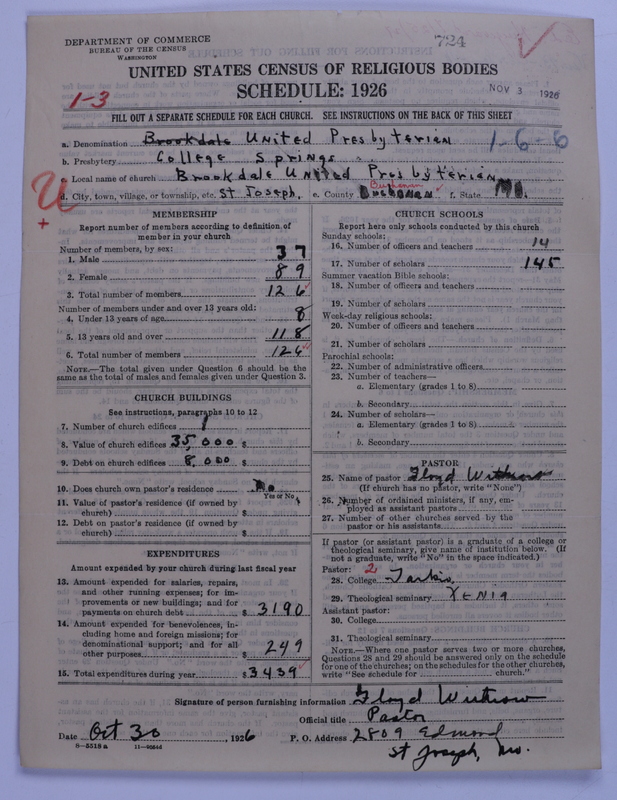 DEPARTMENT OF COMMERCE
BUREAU OF THE CENSUS
WASHINGTON
724
UNITED STATES CENSUS OF RELIGIOUS BODIES
SCHEDULE: 1926
NOV 3 1926
1-3
FILL OUT A SEPARATE SCHEDULE FOR EACH CHURCH. SEE INSTRUCTIONS ON THE BACK OF THIS SHEET
a. Denomination Brookdale United Presbyterian 1-6-6
b. Presbytery College Springs
c. Local name of church Brookdale United Presbyterian
d. City, town, village, or township, etc. St Joseph, e. County Buchanan f. State Mo.
MEMBERSHIP
Report number of members according to definition of
member in your church
Number of members, by sex:
1. Male 37
2. Female 89
3. Total number of members 126
Number of members under and over 13 years old:
4. Under 13 years of age 8
5. 13 years old and over 118
6. Total number of members 126
NOTE.—The total given under Question 6 should be the
same as the total of males and females given under Question 3.
CHURCH BUILDINGS
See instructions, paragraphs 10 to 12
7. Number of church edifices 1
8. Value of church edifices 35,000 $
9. Debt on church edifices 8,000 $
10. Does church own pastor's residence No
Yes or No
11. Value of pastor's residence (if owned by
church) $
12. Debt on pastor's residence (if owned by
church) $
EXPENDITURES
Amount expended by your church during last fiscal year
13. Amount expended for salaries, repairs,
and other running expenses; for im-
provements or new buildings; and for
payments on church debt $ 3190
14. Amount expended for benevolences, in-
cluding home and foreign missions; for
denominational support; and for all
other purposes $ 249
15. Total expenditures during year $ 3439
CHURCH SCHOOLS
Report here only schools conducted by this church
Sunday schools:
16. Number of officers and teachers 14
17. Number of scholars 145
Summer vacation Bible schools:
18. Number of officers and teachers
19. Number of scholars
Week-day religious schools:
20. Number of officers and teachers
21. Number of scholars
Parochial schools:
22. Number of administrative officers
23. Number of teachers—
a. Elementary (grades 1 to 8)
b. Secondary
24. Number of scholars—
a. Elementary (grades 1 to 8)
b. Secondary
PASTOR
25. Name of pastor Floyd Withrow
(If church has no pastor, write "None")
26. Number of ordained ministers, if any, em-
ployed as assistant pastors
27. Number of other churches served by the
pastor or his assistants
If pastor (or assistant pastor) is a graduate of a college or
theological seminary, give name of institution below. (If
not a graduate, write "No" in the space indicated.)
Pastor: 2
28. College Tarkio
29. Theological seminary Xenia
Assistant pastor:
30. College
31. Theological seminary
NOTE.—Where one pastor serves two or more churches,
Questions 28 and 29 should be answered only on the schedule
for one of the churches; on the schedules for the other churches,
write "See schedule for church."
Signature of person furnishing information Floyd Withrow
Official title Pastor
Date Oct 30, 1926 P. O. Address 2809 Edmond
8-5518 a St Joseph, Mo.